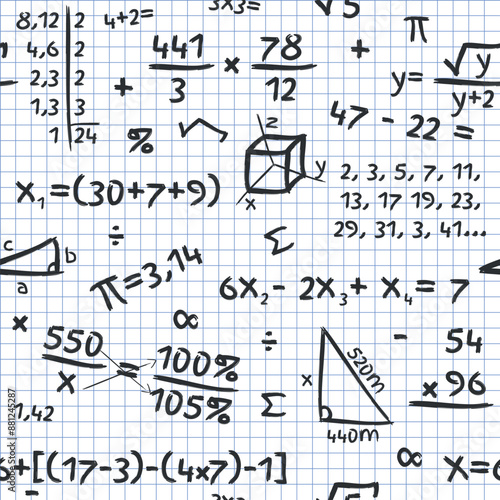 3x3=
√5
8,12 | 2
4,6 | 2
2,3 | 2
1,3 | 3
1 | 24
4+2=
+
441/3 × 78/12
+
π
y= √y/y+2
47 - 22 =
%
√
z
y
x
2, 3, 5, 7, 11,
13, 17 19, 23,
29, 31, 3, 41...
X₁=(30+7+9)
÷
Σ
c
b
a
π=3,14
6X₂- 2X₃+ X₄= 7
×
∝
550/x = 100%/105%
÷
Σ
x
520m
440m
-
54
×96
1,42
+[(17-3)-(4x7)-1]
∝
X=
√5
3x3=
Adobe Stock | #881245287